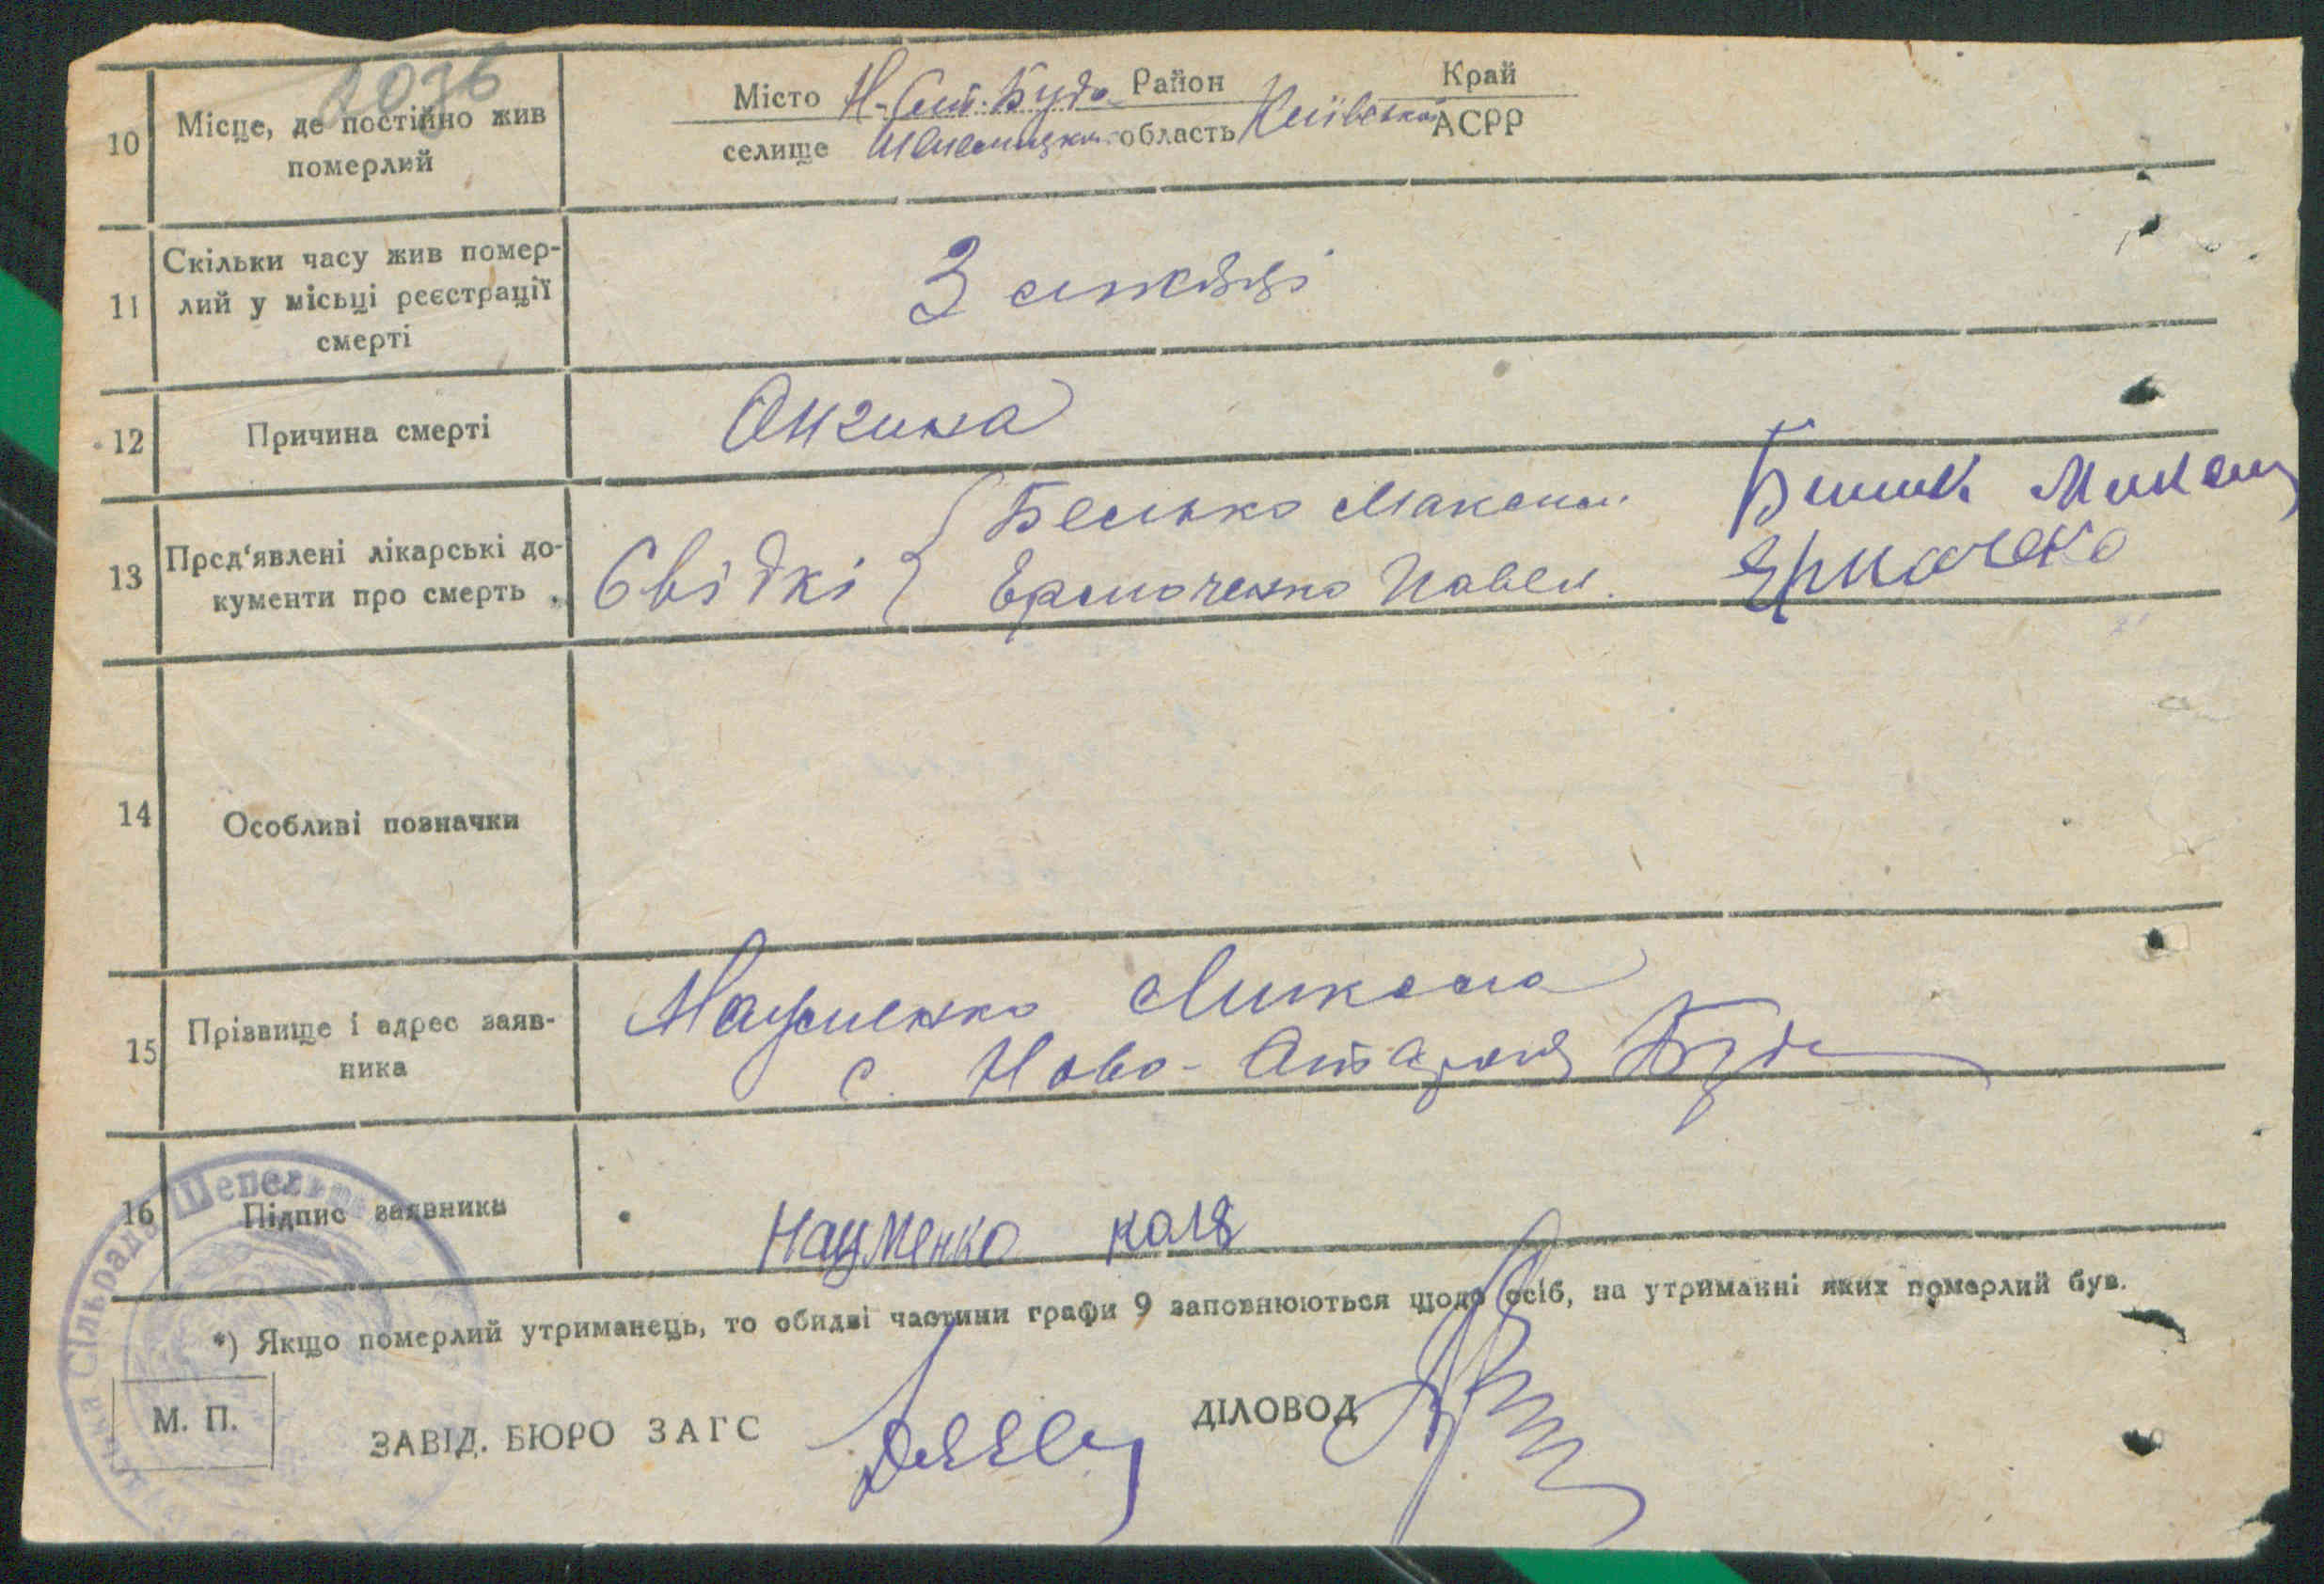 2036
10
Місце, де постійно жив
померлий
Місто Н-Сот. Буда Район Край
селище область Київської АСРР
11
Скільки часу жив помер-
лий у місьці реєстрації
смерті
3 місяці
12
Причина смерті
Ангина
13
Пред'явлені лікарські до-
кументи про смерть
Свідкі
Максим
Ермоченко Павел.
14
Особливі позначки
15
Прізвище і адрес заяв-
ника
Науменко Микола
с. Ново- Буда
16
Підпис заявника
Науменко Коля
*) Якщо померлий утриманець, то обидві частини графи 9 заповнюються щодо осіб, на утриманні яких померлий був.
М. П.
ЗАВІД. БЮРО ЗАГС
ДІЛОВОД
Сільрада